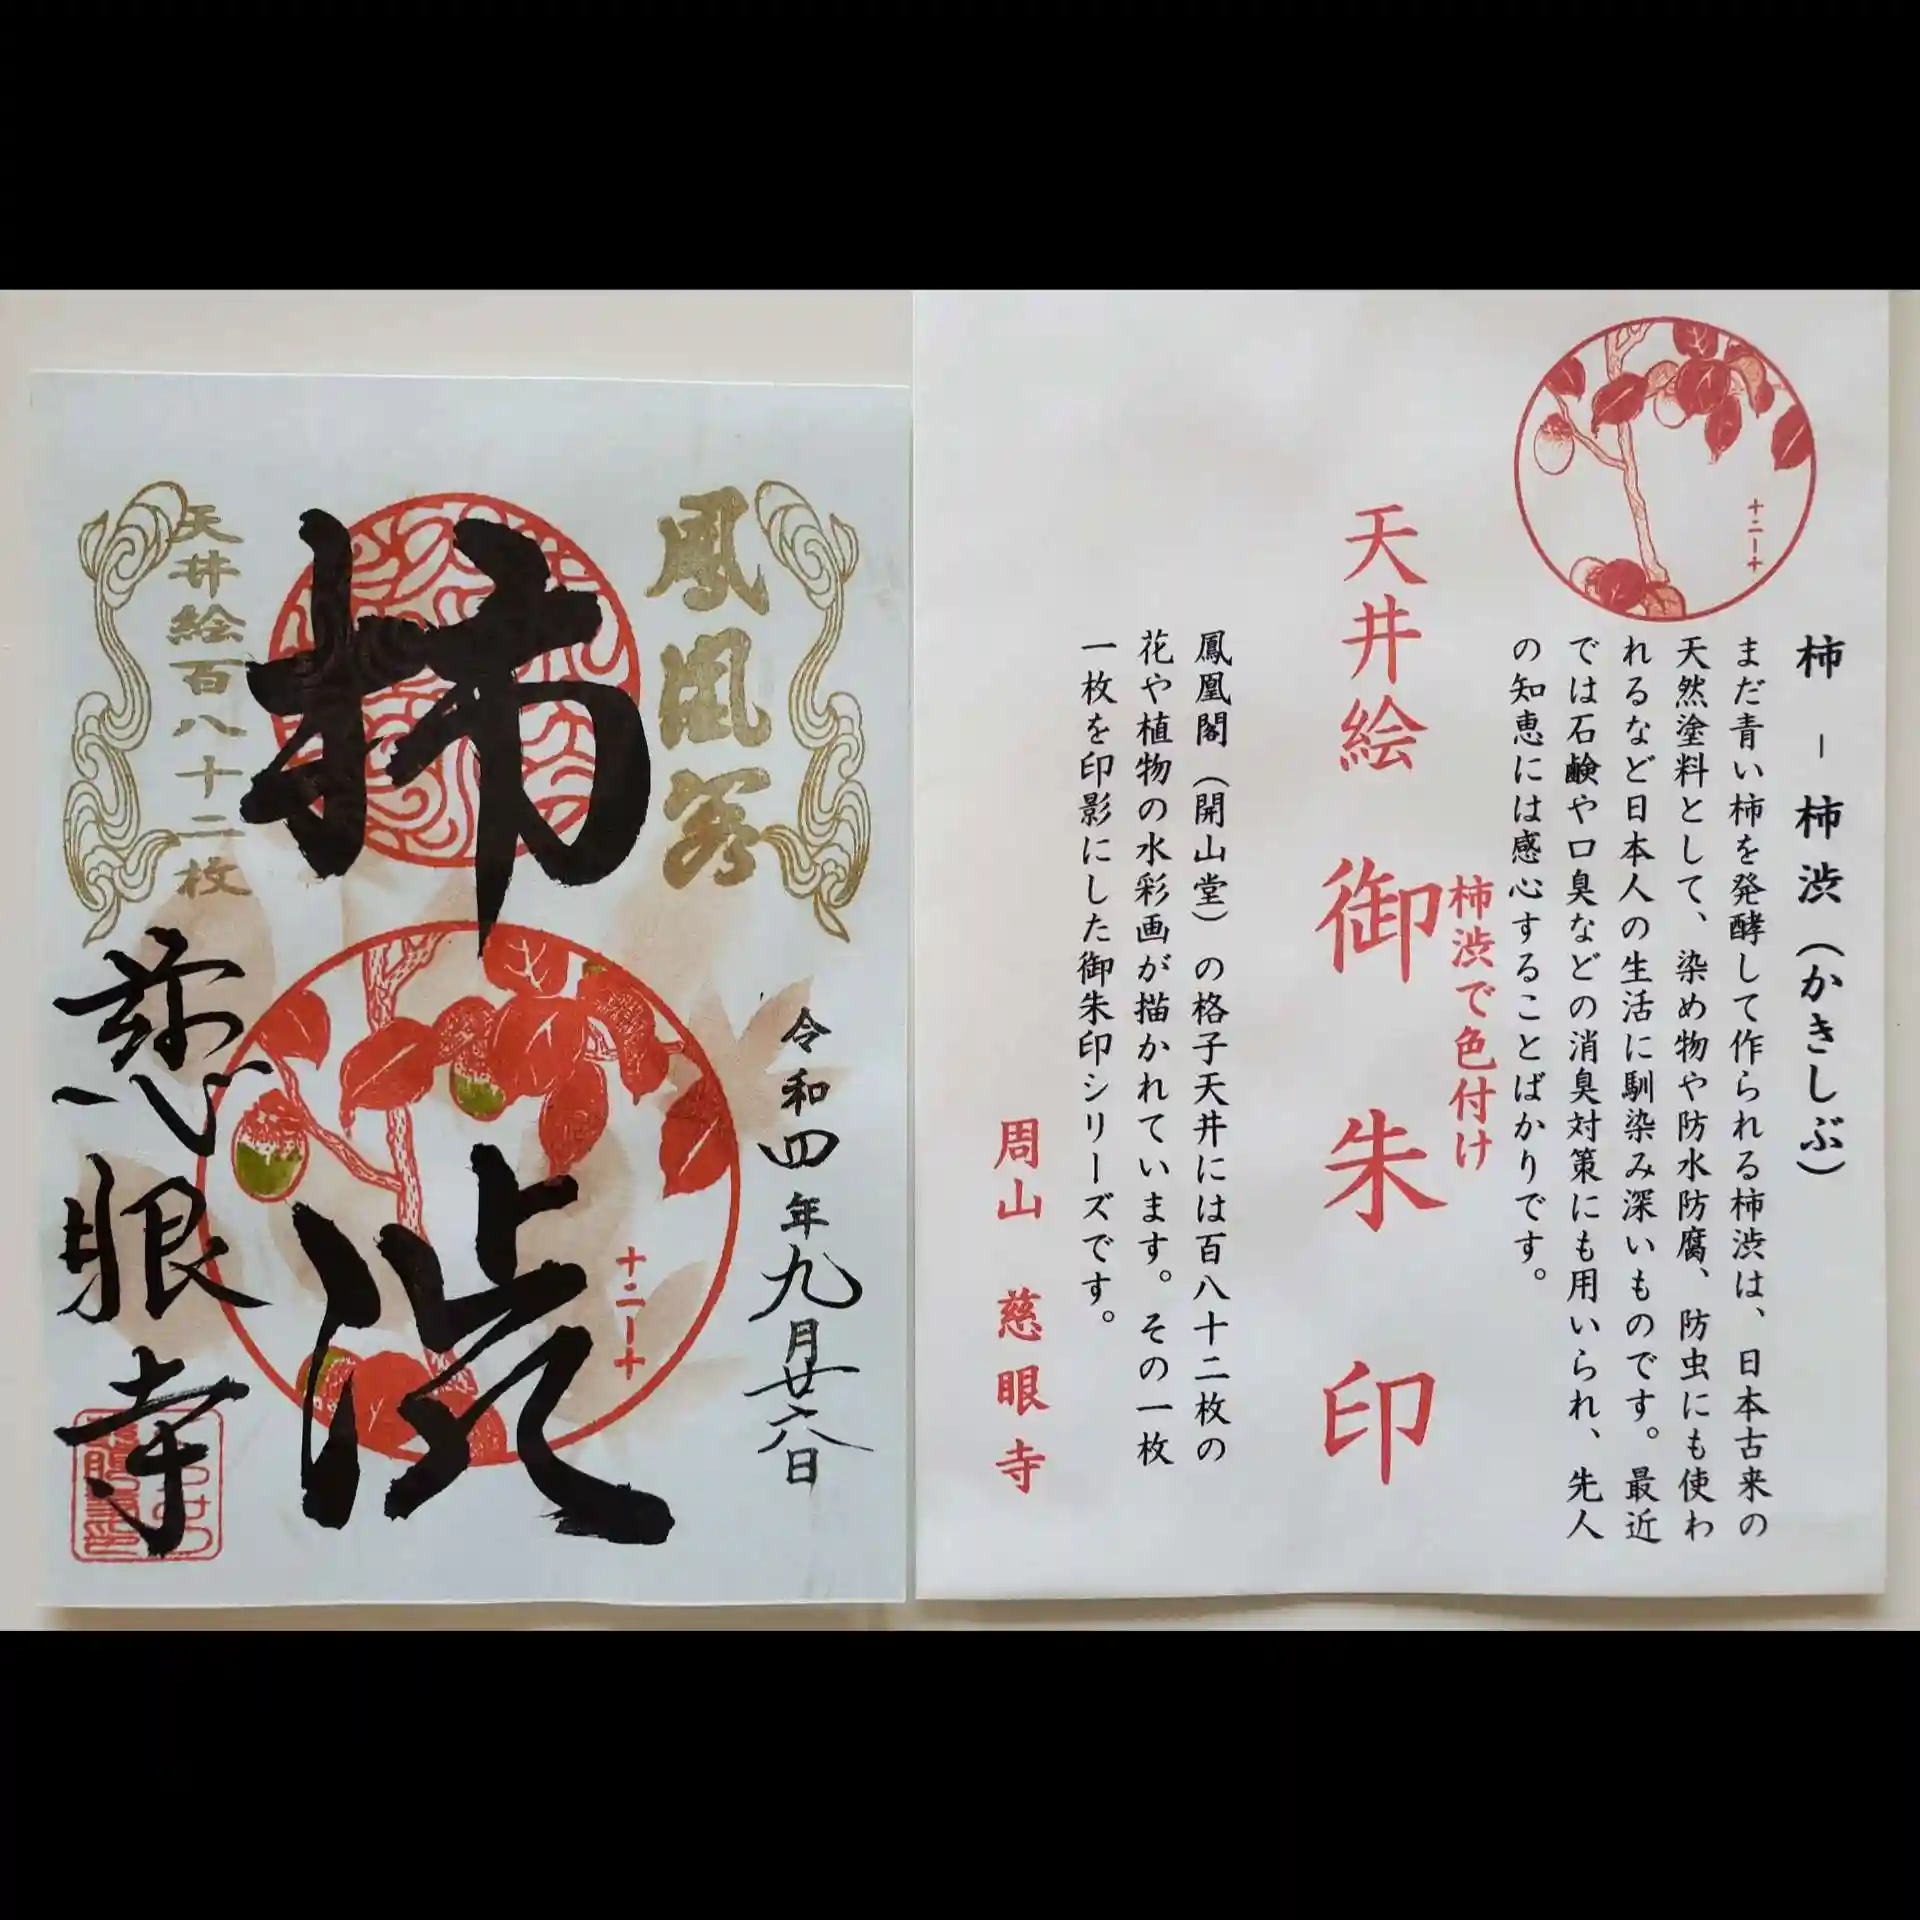 鳳凰閣
天井絵百八十二枚
柿渋
令和四年九月廿六日
慈眼寺
十二ー十
十二ー十
柿 - 柿渋（かきしぶ）
まだ青い柿を発酵して作られる柿渋は、日本古来の
天然塗料として、染め物や防水防腐、防虫にも使わ
れるなど日本人の生活に馴染み深いものです。最近
では石鹸や口臭などの消臭対策にも用いられ、先人
の知恵には感心することばかりです。
柿渋で色付け
天井絵 御朱印
鳳凰閣（開山堂）の格子天井には百八十二枚の
花や植物の水彩画が描かれています。その一枚
一枚を印影にした御朱印シリーズです。
周山 慈眼寺